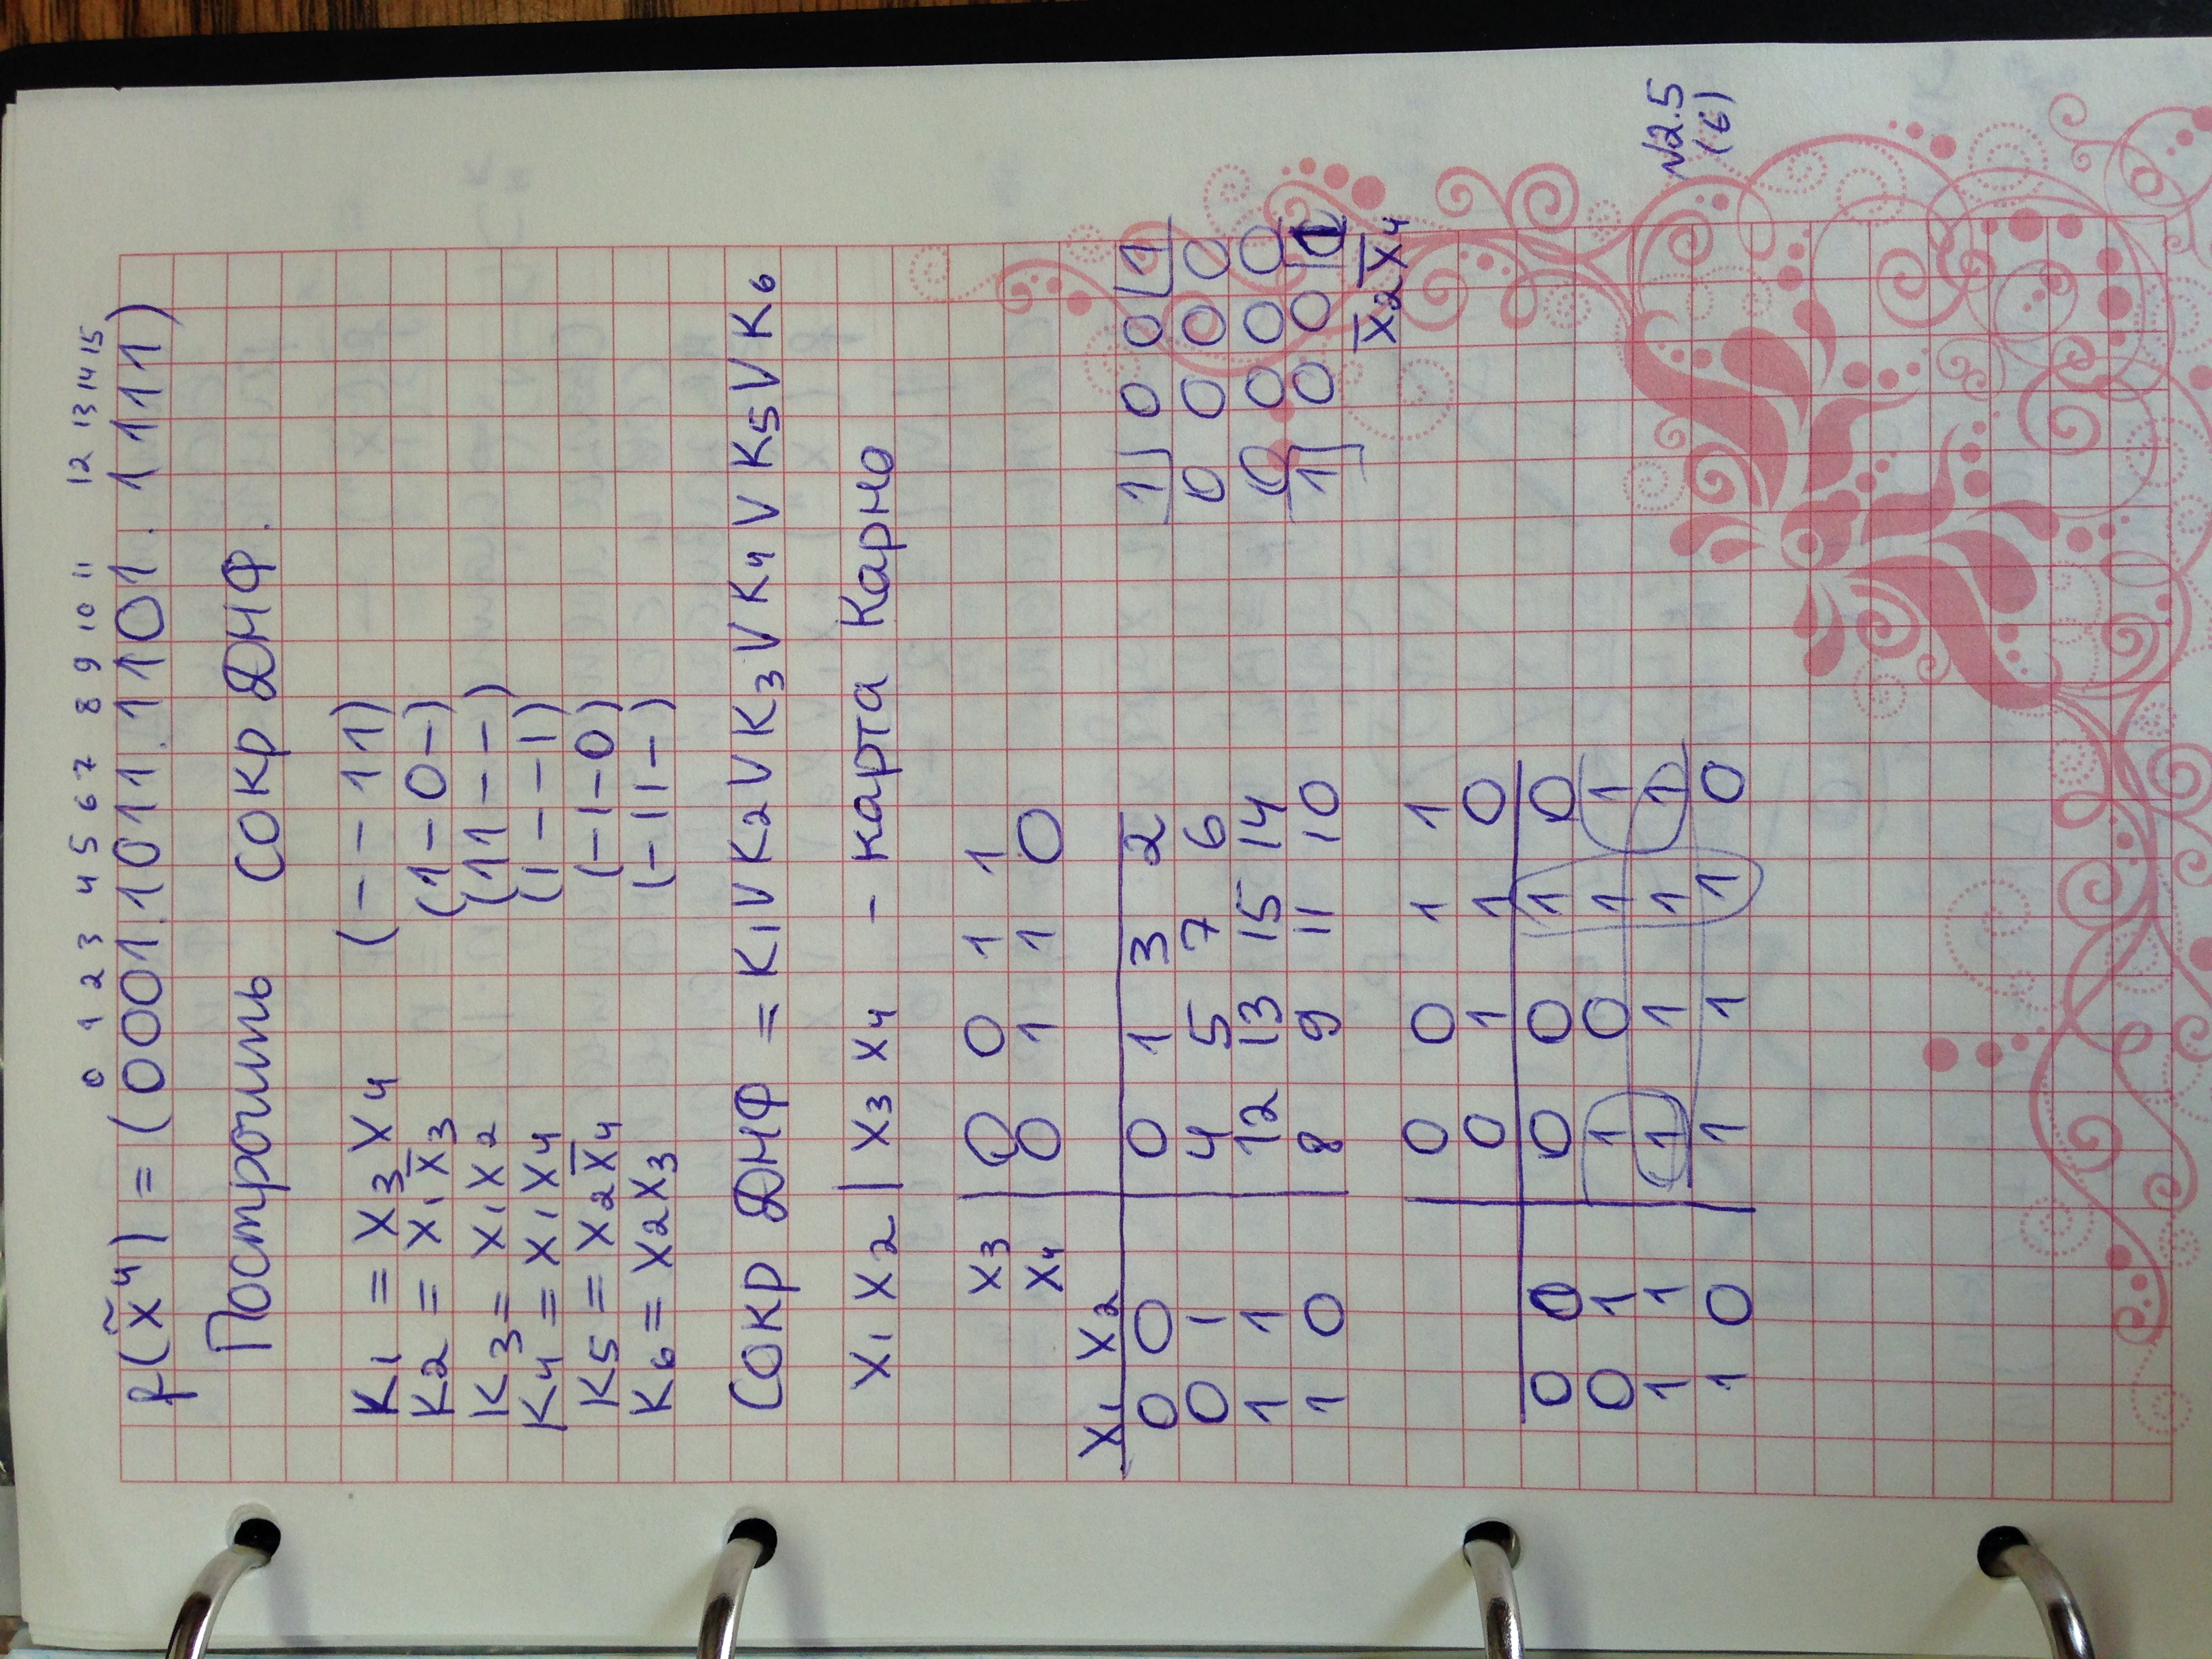 0 1 2 3 4 5 6 7 8 9 10 11 12 13 14 15
f(x̃⁴) = (0001.1011.1101.1111)
Построить сокр ДНФ.
K₁ = x₃x₄ (--11)
K₂ = x₁x̅₃ (1-0-)
K₃ = x₁x₂ (11--)
K₄ = x₁x₄ (1--1)
K₅ = x₂x̅₄ (-1-0)
K₆ = x₂x₃ (-11-)
Сокр ДНФ = K₁VK₂VK₃VK₄VK₅VK₆
x₁x₂ | x₃x₄ - карта Карно
x₃ 0 0 1 1
x₄ 0 1 1 0
x₁ x₂
0 0 0 1 3 2
0 1 4 5 7 6
1 1 12 13 15 14
1 0 8 9 11 10
1 0 0 1
0 0 0 0
0 0 0 0
1 0 0 1
x̅₂x̅₄
0 0 1 1
0 1 1 0
0 0 0 0 1 0
0 1 1 0 1 1
1 1 1 1 1 1
1 0 1 1 1 0
√2.5
(6)